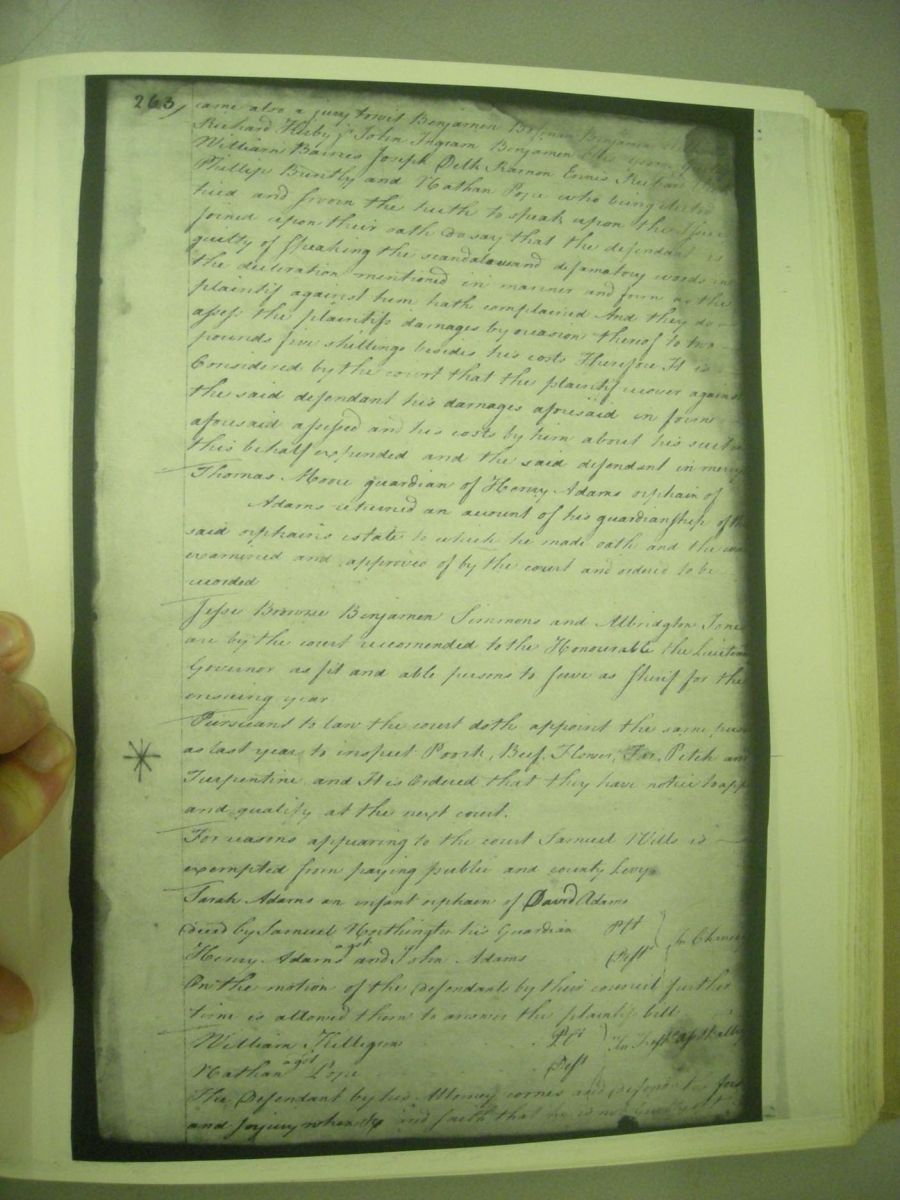 263/
came also a jury towit Benjamin Benjamin
Richard Kirby John Ingram Benjamin
William Baines Joseph Delk Kamon Ennis
Phillip Bently and Nathan Pope who being
tried and sworn the truth to speak upon the Issue
joined upon their oath do say that the defendant is
guilty of speaking the scandalous and defamatory words in
the decleration mentioned in manner and form as the
plaintif against him hath complained And they do
assess the plaintifs damages by occasion thereof to two
pounds five shillings besides his costs Therefore It is
Considered by the court that the plaintif recover against
the said defendant his damages aforesaid in form
aforesaid assessed and his costs by him about his suit in
this behalf expended and the said defendant in mercy
Thomas Moore guardian of Henry Adams orphain of
Adams returned an account of his guardianship of the
said orphains estate to which he made oath and the
examined and approved of by the court and ordered to be
recorded
Jesse Browne Benjamen Simmons and Albridgton Jones
are by the court recomended to the Honourable the Lieuten
Governor as fit and able persons to serve as sherif for the
ensuing year
Pursuant to law the court doth appoint the same pers
* as last year to inspect Poork, Beef, Flower, Tar, Pitch and
Turpentine and It is Ordered that they have notice to app
and qualify at the next court.
For reasons appearing to the court Samuel Wills is
exempted from paying public and county Levy
Sarah Adams an infant orphain of David Adams
deced by Samuel Northington his Guardian Plt
agst
Henry Adams and John Adams Deft In Chance
On the motion of the defendants by their council further
time is allowed them to answer the plaintifs bill
William Killigrew Plt
agst
Nathan Pope Deft
The Defendant by his Attorney comes and defends the force
and Injury when &c and saith that he is not Guilty